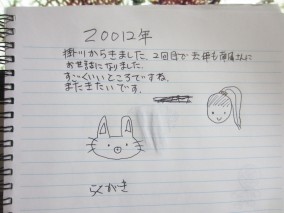 20012年
掛川からきました。2回目で去年も南原さんに
お世話になりました。
すごくいいところですね。
またきたいです。
らくがき